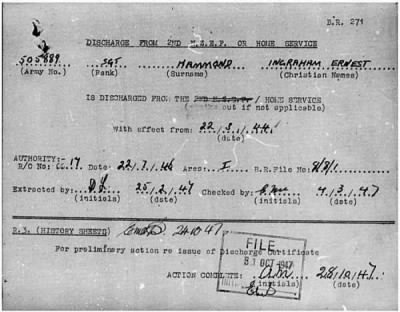 B.R. 271
DISCHARGE FROM 2ND N.Z.E.F. OR HOME SERVICE
505889 SGT HAMMOND INGRAHAM ERNEST
(Army No.) (Rank) (Surname) (Christian Names)
IS DISCHARGED FROM THE 2ND N.Z.E.F. / HOME SERVICE
out if not applicable)
With effect from: 22/3/44
(date)
AUTHORITY:- 17
R/O No: Date: Area: I H.R.File No: 8/8/1
Extracted by: 25/2/47 Checked by: 4/3/47
(initials) (date) (initials) (date)
R.3. (HISTORY SHEETS) 24.10.47
For preliminary action re issue of Discharge Certificate
FILE
31 OCT 1947
ACTION COMPLETE: 28/10/47
(initials) (date)